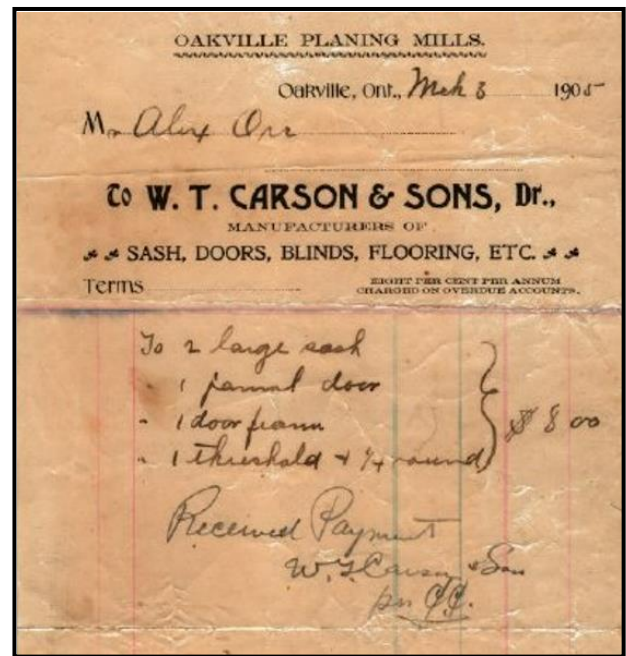 OAKVILLE PLANING MILLS.
Oakville, Ont., Mch 3 1905
Mr Alex Orr
To W. T. CARSON & SONS, Dr.,
MANUFACTURERS OF
SASH, DOORS, BLINDS, FLOORING, ETC.
Terms
EIGHT PER CENT PER ANNUM
CHARGED ON OVERDUE ACCOUNTS.
To 2 large sash
" 1 pannal door
" 1 door frame
" 1 threshold + 1/4 round
$ 8 00
Received Payment
W. T. Carson & Son
per